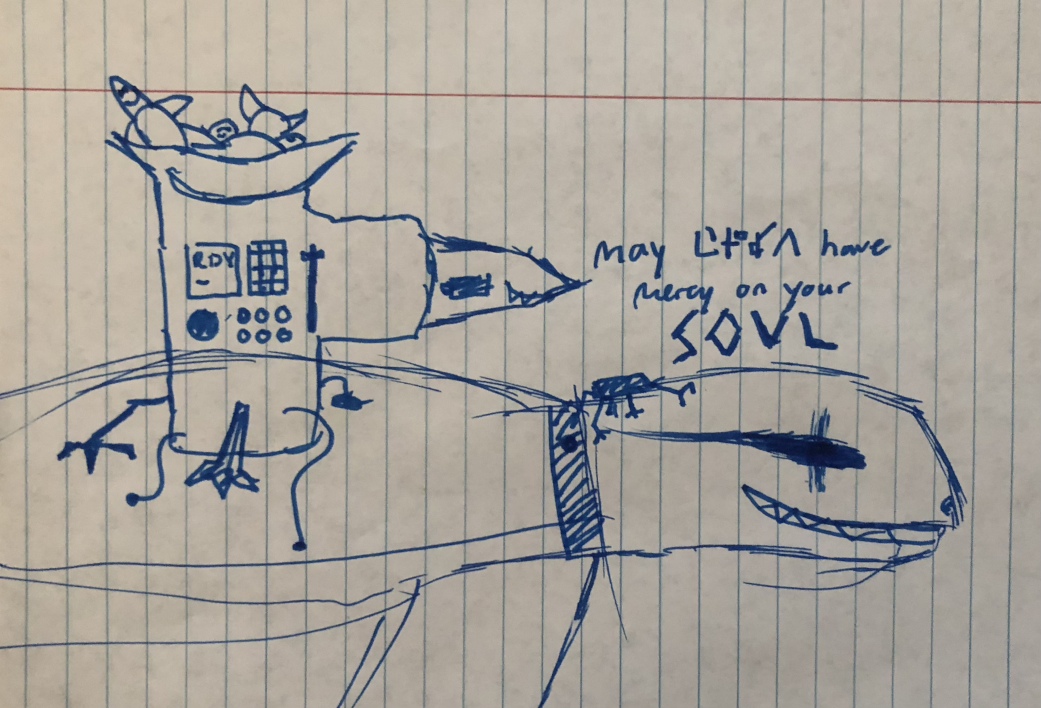 RDY
may have
mercy on your
SOVL